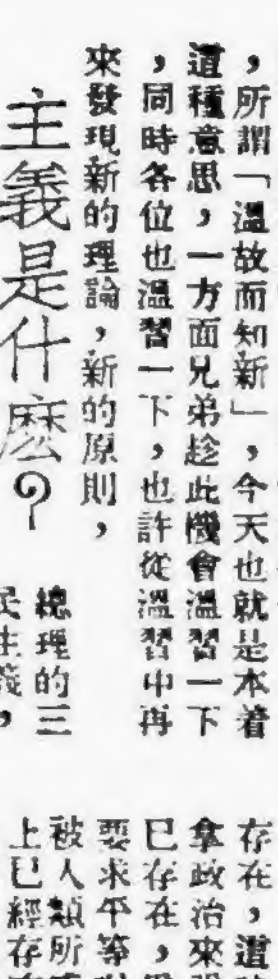 ，所謂「溫故而知新」，今天也就是本着
這種意思，一方面兄弟趁此機會溫習一下
，同時各位也溫習一下，也許從溫習中再
來發現新的理論，新的原則，
主義是什麽？
總理的三
民生義，
存在，這
拿政治來
已存在，
要求平等
被人類所
上已經存